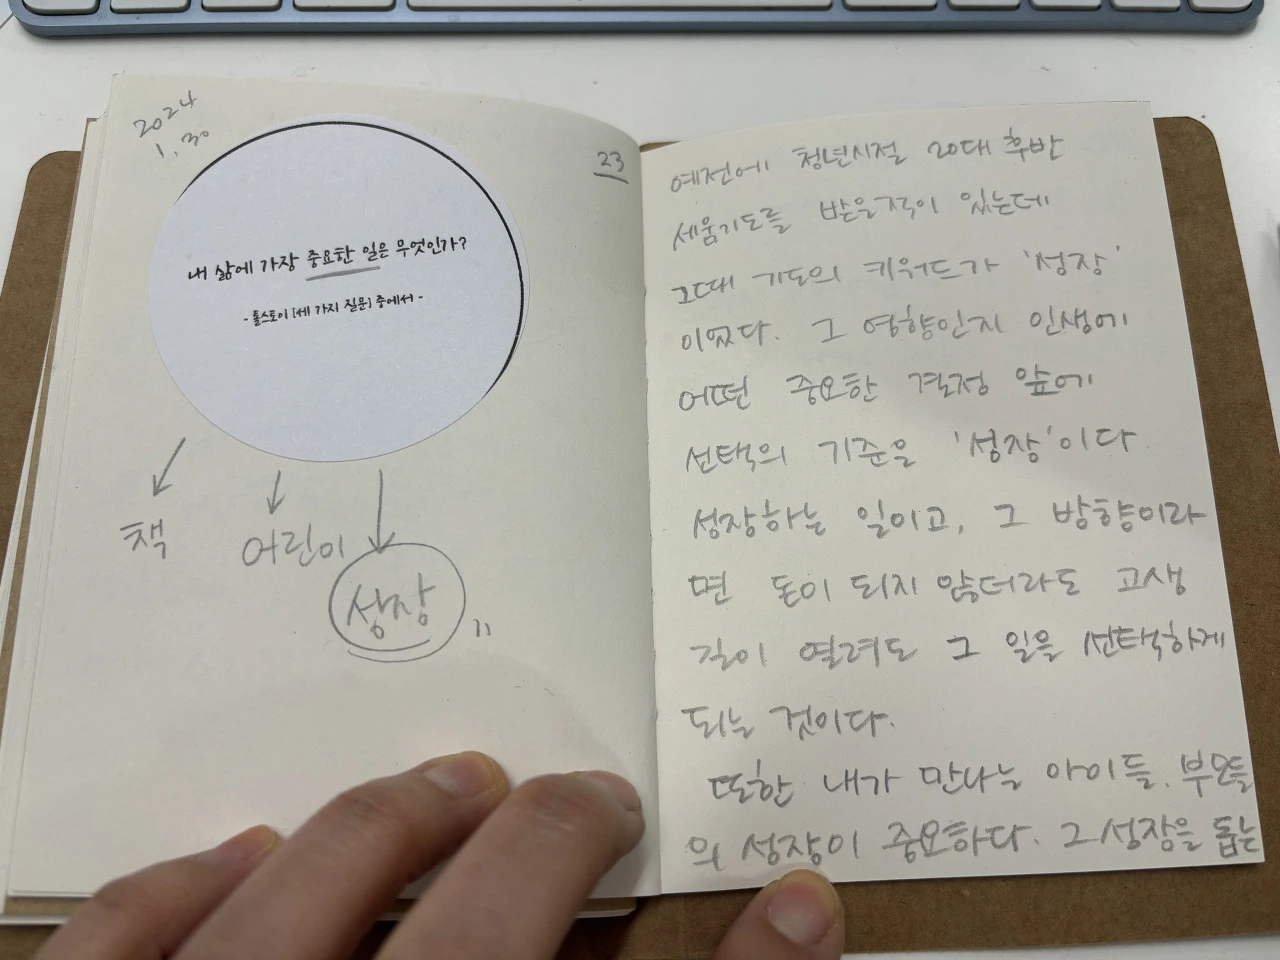 2024
1. 30
23
내 삶에 가장 중요한 일은 무엇인가?
- 톨스토이 [세 가지 질문] 중에서 -
책
어린이
성장
예전에 청년시절 20대 후반
세움기도를 받을적이 있는데
그때 기도의 키워드가 '성장'
이었다. 그 영향인지 인생에
어떤 중요한 결정 앞에
선택의 기준은 '성장'이다
성장하는 일이고, 그 방향이라
면 돈이 되지 않더라도 고생
길이 열려도 그 일을 선택하게
되는 것이다.
또한 내가 만나는 아이들. 부모들
의 성장이 중요하다. 그 성장을 돕는